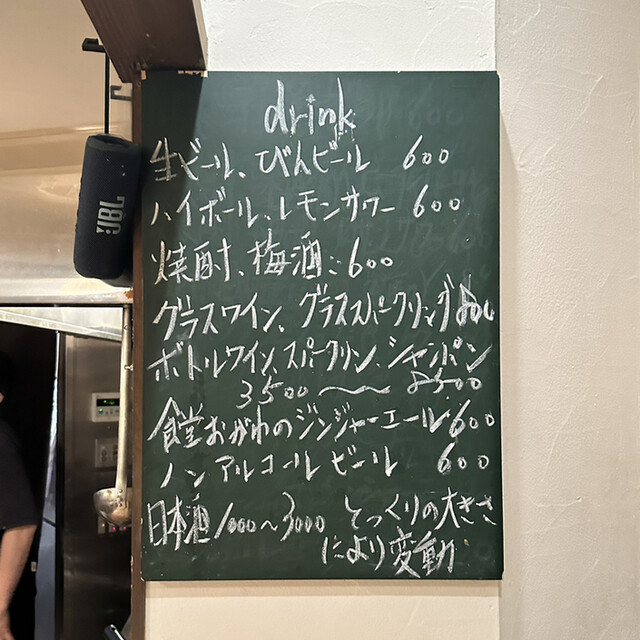 drink
生ビール、びんビール 600
ハイボール、レモンサワー 600
焼酎、梅酒 : 600
グラスワイン、グラススパークリング 800
ボトルワイン、スパークリン、シャンパン
3500〜〜 8500
食堂おがわのジンジャーエール 600
ノンアルコールビール 600
日本酒 1000〜3000 とっくりの大きさ
により変動
JBL